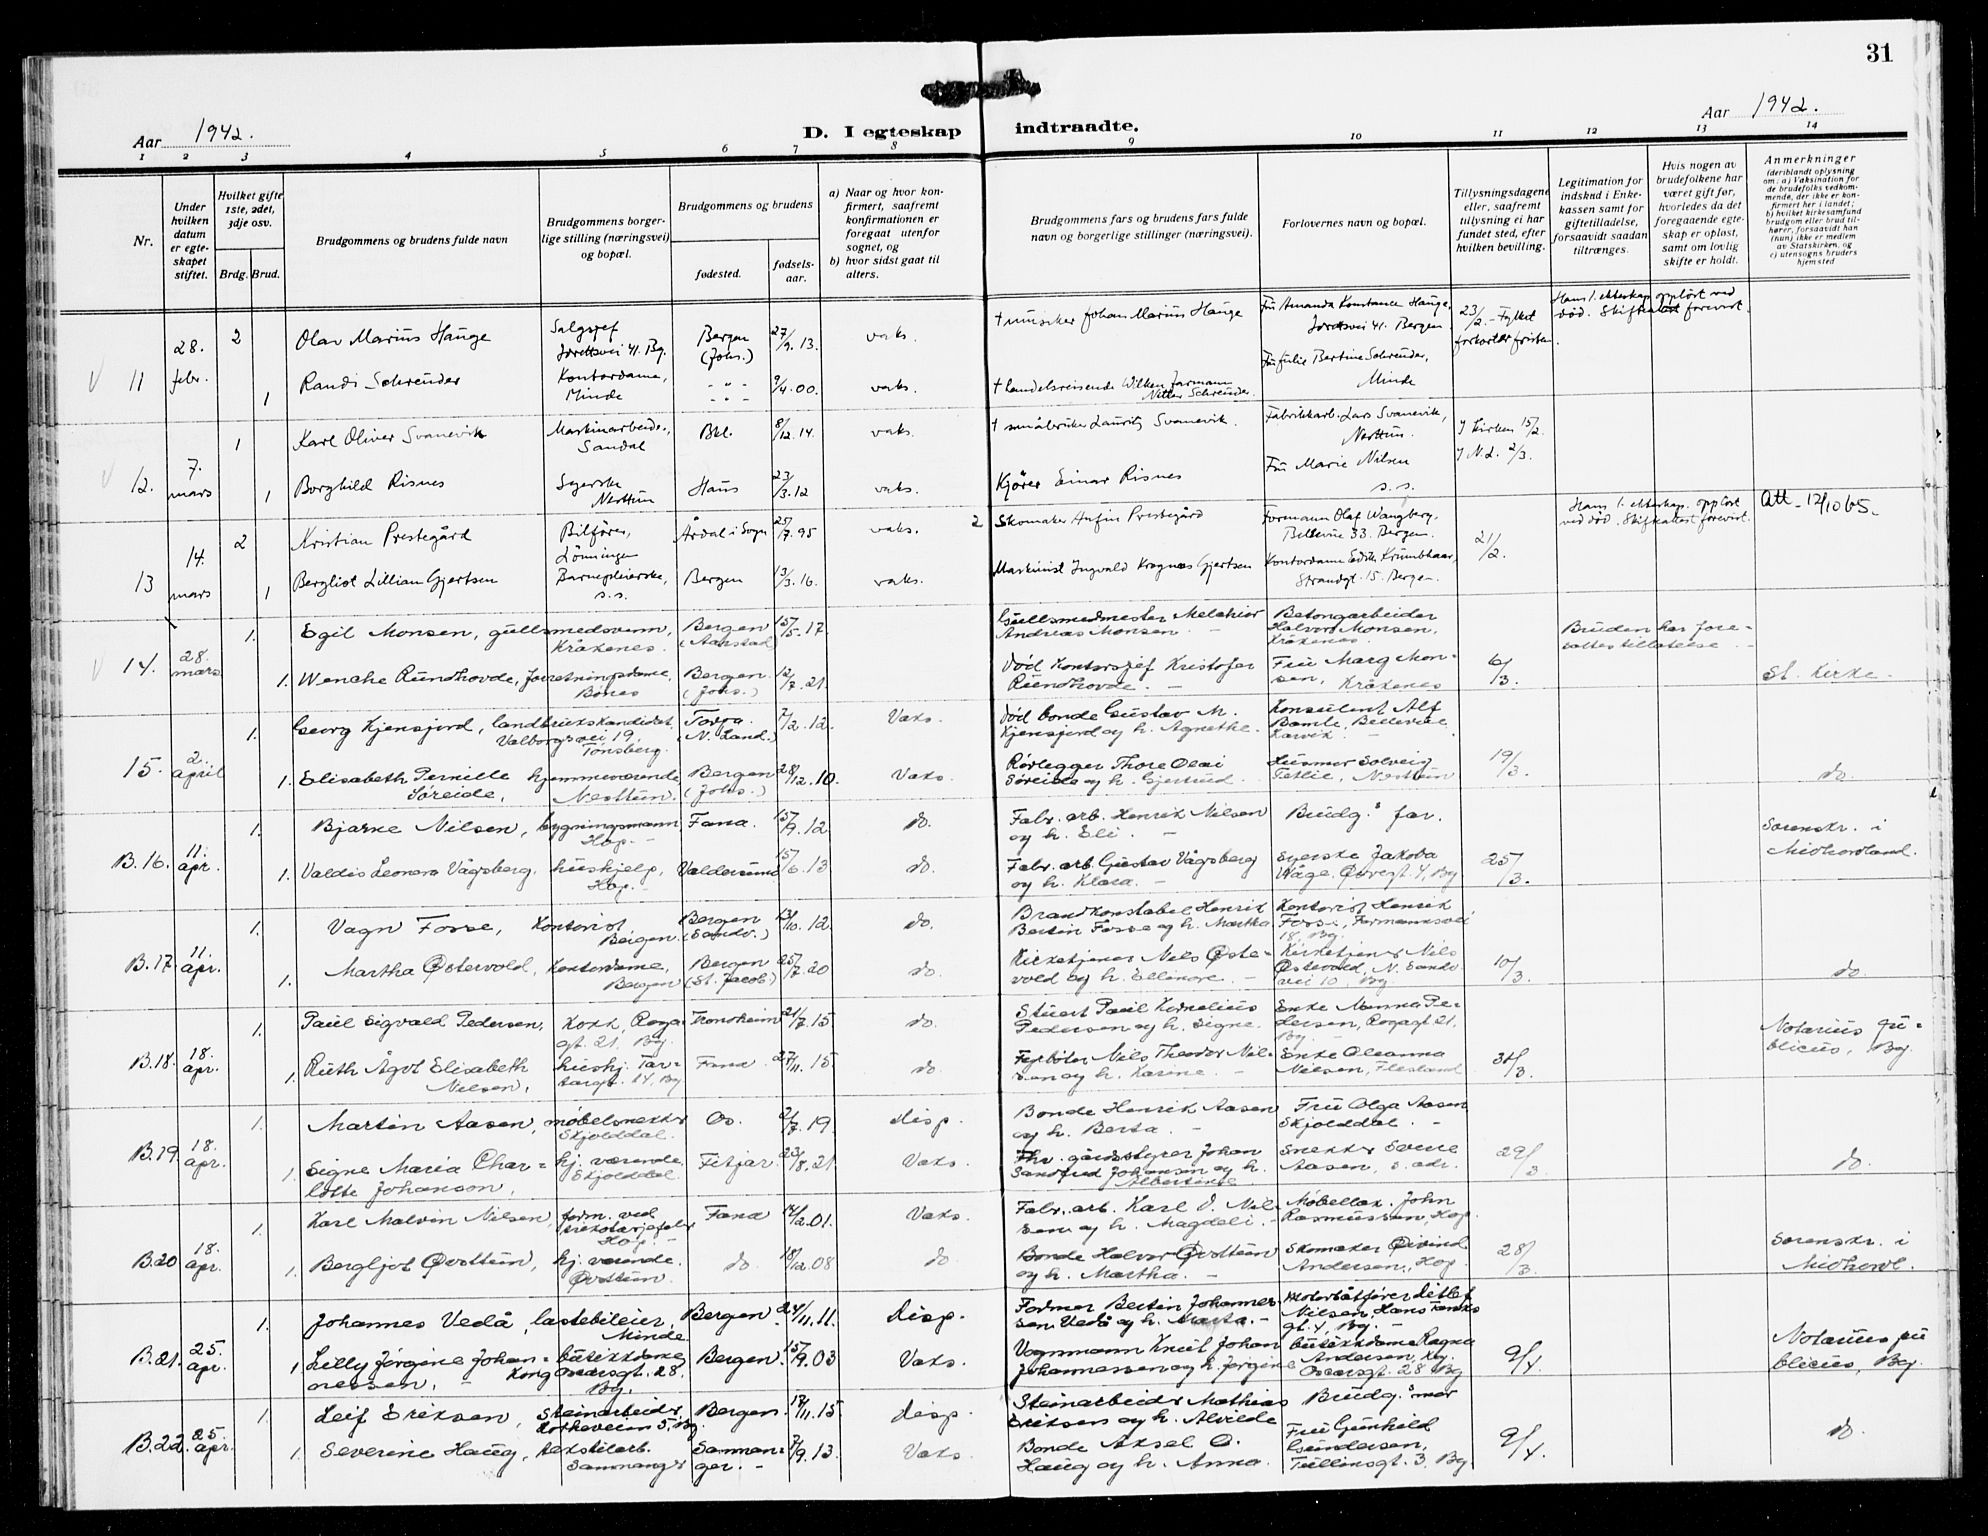 31
Aar 1942.
D. I egteskap indtraadte.
Aar 1942.
1 2 3 4 5 6 7 8 9 10 11 12 13 14
Nr.
Under hvilken datum er egteskapet stiftet.
Hvilket gifte 1ste, 2det, 3dje osv.
Brdg. Brud.
Brudgommens og brudens fulde navn
Brudgommens borgerlige stilling (næringsvei) og bopæl.
Brudgommens og brudens
fødested.
fødselsaar.
a) Naar og hvor konfirmert, saafremt konfirmationen er foregaat utenfor sognet, og
b) hvor sidst gaat til alters.
Brudgommens fars og brudens fars fulde navn og borgerlige stillinger (næringsvei).
Forlovernes navn og bopæl.
Tillysningsdagene eller, saafremt tillysning ei har fundet sted, efter hvilken bevilling.
Legitimation for indskud i Enkekassen samt for giftetilladelse, forsaavidt saadan tiltrænges.
Hvis nogen av brudefolkene har været gift før, hvorledes da det foregaaende egteskap er opløst, samt om lovlig skifte er holdt.
Anmerkninger
(deriblandt oplysning om: a) Vaksination for de brudefolks vedkommende, der ikke er konfirmert her i landet; b) hvilket kirkesamfund brudgom eller brud tilhører, forsaavidt han (hun) ikke er medlem av Statskirken, og c) utensogns bruders hjemsted
11 28. febr. 2 Olav Marius Hauge Salgssjef Jordtsvei 41. Bg. Bergen (Johs.) 27/9. 13. vaks. † musiker Johan Marius Hauge Fru Amanda Konstance Hauge, Jordtsvei 41. Bergen 23/2. - Fylket forkorter fristen. Hans 1. ekteskap oppløst ved død. Skifteatt forevist.
1 Randi Schreuder Kontordame, Minde - " - 9/4. 00. vaks. † handelsreisende Wilken Jarmann Nitter Schreuder. Fru Julie Bertine Schreuder, Minde
12. 7. mars 1 Karl Oliver Svanevik Maskinarbeider, Sandal Bkl. 8/12. 14. vaks. † småbruker Laurits Svanevik. Fabrikkarb. Lars Svanevik, Nesttun. I kirken 15/2.
1 Borghild Risnes Syerske Nesttun Haus 23/3. 12 vaks. Kjører Einar Risnes Fru Marie Nilsen s.s. I N.d. 2/3.
13 14. mars 2 Kristian Prestegård Bilfører, Lønningen Årdal i Sogn 25/7. 95 vaks. 2 Skomaker Anfin Prestegård Formann Olaf Wangberg, Bellevue 33. Bergen. 21/2. Hans 1. ekteskap. oppløst ved død. Skifteattest forevist. Att - 12/10 65.
1 Bergliot Lillian Gjertsen Barnepleierske, s.s. Bergen 13/3. 16. vaks. Maskinist Ingvald Kragnæs Gjertsen Kontordame Edith Krumbhaar, Strandgt. 15. Bergen.
14. 28. mars 1. Egil Monsen, gullsmedsvenn, Kråkenes. Bergen (Aarstad) 15/5. 17. Gullsmedmester Melchior Andreas Monsen. - Betongarbeider Halvor Monsen, Kråkenes. Bruden har foresattes tillatelse. -
1. Wenche Rundhovde, forretningsdame, Bønes Bergen. (Johs.) 12/7. 21. Død kontorsjef Kristofer Rundhovde. - Fru Marg Monsen, Kråkenes 6/3. St. Kirke.
15. 2. april 1. Georg Kjensjord, landbrukskandidat. Valborgsvei 19, Tønsberg. Torpa (N. Land.) 7/2. 12. Vaks. Død bonde Gustav M. Kjensjord og h. Agnethe. Konsulent Alf Bamle, Bellevue Larvik. -
1. Elisabeth Pernille Søreide, hjemmeværende Nesttun. Bergen (Johs.) 28/12. 10. Vaks. Rørlegger Thore Olai Søreide og h. Gjertrud. Husmor Solveig Tetlie, Nesttun 19/3. do.
B. 16. 11. apr. 1. Bjarne Nilsen, bygningsmann Hop. - Fana. 15/9. 12. do. Fabr. arb. Henrik Nilsen og h. Eli. - Brudg.s far.
1. Valdis Leonora Vågsberg. hushjelp, Hop. - Valdersund 15/6. 13 do. Fabr. arb. Gustav Vågsberg og h. Klara. - Syerske Jakoba Våge. Øvregt. 4, Bg 25/3. Sorenskr. i Midhordland.
B. 17. 11. apr. 1. Vagn Fosse, Kontorist Bergen. Bergen (Sandv.) 13/10. 12. do. Brandkonstabel Henrik Bertin Fosse og h. Martha Kontorist Henrik Fosse, Formannsvei 18, Bg.
1. Martha Østervold, Kontordame, Bergen Bergen (St. Jacob.) 25/7. 20 do. Kirketjener Nils Østervold og h. Ellinore. - Kirketjener Nils Østervold, N. Sandv vei 10, Bg. 10/3. do.
B. 18. 18. apr. 1. Paul Sigvald Pedersen, Kokk, Rosagt. 21, Bg. Trondheim 21/7. 15. do. Stuert Paul Kornelius Pedersen og h. Signe. Enke Nanna Pedersen, Rosagt 21, Bg. -
1. Ruth Ågot Elisabeth Nilsen, hushj. Torborgt. 14, Bg Fana 27/11. 15 do. Fyrbøter Nils Theodor Nilsen og h. Karine. - Enke Oleanna Nilsen, Flesland 31/3. Notarius publicus, Bg.
B. 19. 18. apr. 1. Martin Aasen, møbelsnekker Skjolddal. Os. 2/7. 19. disp. Bonde Henrik Aasen og h. Berta. - Fru Olga Aasen Skjolddal. -
1. Signe Maria Charlotte Johanson, hj. værende. Skjolddal. Fitjar. 23/8. 21. Vaks. Fhv. gårdsstyrer Johan Sandfred Johansen og h. Albertine. Snekker Sverre Aasen, s. adr. 29/3. do.
B. 20 18. apr. 1. Karl Malvin Nilsen, form. ved trikotasjefabr Hop. - Fana 14/2. 01. Vaks. Fabr. arb. Karl O. Nilsen og h. Magdeli. - Møbellak. John Rasmussen, Hop.
1. Bergljot Øvsttun, hj. værende. Øvsttun. do. 18/12. 08 do. Bonde Halvor Øvsttun og h. Martha. - Skomaker Øivind Andersen, Hop. 28/3. Sorenskr. i Midhordl.
B. 21. 25. apr. 1. Johannes Vedå, lastebileier, Minde Bergen. 24/11. 11. Disp. Farmer Bertin Johannessen Vedå og h. Marta. - Motorbåtfører Ditlef Nilsen, Hans Tanks gt. 4, Bg. -
1. Lilly Jørgine Johannessen. - butikkdame Kong Oscarsgt. 28. Bg. Bergen. 15/9. 03 Vaks. Vognmann Knut Johan Johannessen og h. Jørgine butikkdame Ragna Andersen, Kg. Oscarsgt. 28 Bg 9/4. Notarius publicus, Bg.
B. 22. 25. apr. 1. Leif Eriksen, Steinarbeider, Rothaveien 5, Bg. Bergen. 17/11. 15 Disp. Steinarbeider Mathias Eriksen og h. Alvilde Brudg.s mor
1. Severine Haug, tekstilarb. Samnanger Samnanger. - 7/9. 13. Vaks. Bonde Aksel O. Haug og h. Anna. Fru Gunhild Gundersen, Tullinsgt. 3. Bg 9/4. do.